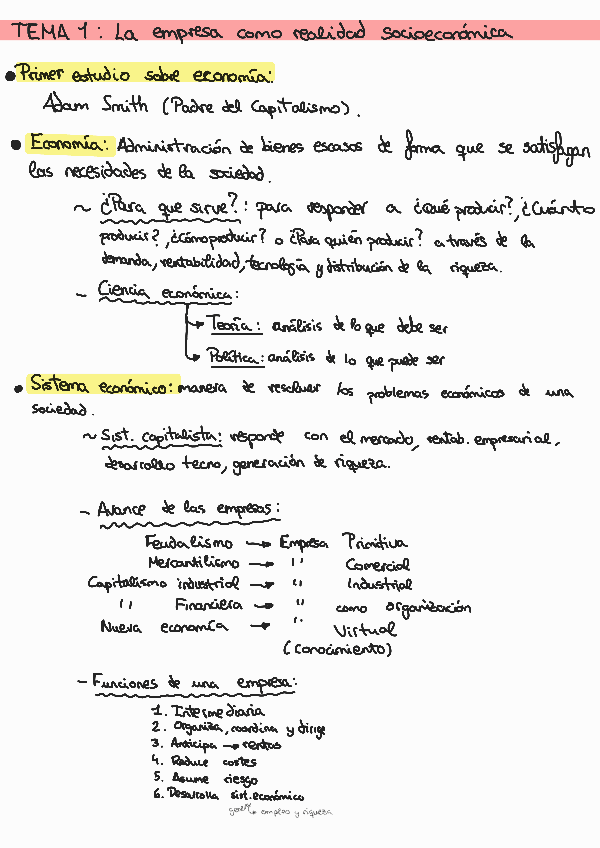 TEMA 1: La empresa como realidad socioeconómica
• Primer estudio sobre economía:
Adam Smith (Padre del Capitalismo).
• Economía: Administración de bienes escasos de forma que se satisfagan
las necesidades de la sociedad.
~ ¿Para que sirve?: para responder a ¿Qué producir?, ¿Cuánto
producir?, ¿Cómo producir? o ¿Para quién producir? a través de la
demanda, rentabilidad, tecnología y distribución de la riqueza.
- Ciencia económica:
→ Teoría: análisis de lo que debe ser
→ Política: análisis de lo que puede ser
• Sistema económico: manera de resolver los problemas económicos de una
sociedad.
~ Sist. capitalista: responde con el mercado, rentab. empresarial,
desarrollo tecno, generación de riqueza.
- Avance de las empresas:
Feudalismo → Empresa Primitiva
Mercantilismo → '' Comercial
Capitalismo industrial → '' Industrial
'' Financiera → '' como organización
Nueva economía → '' Virtual
(conocimiento)
- Funciones de una empresa:
1. Intermediaria
2. Organiza, coordina y dirige
3. Anticipa → rentas
4. Reduce costes
5. Asume riesgo
6. Desarrolla sist. económico
empleo y riqueza